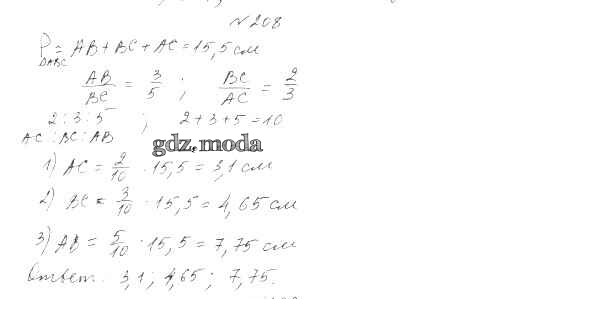 N 208
P = AB + BC + AC = 15,5 см
ΔABC
AB/BC = 3/5 ; BC/AC = 2/3
2 : 3 : 5 ; 2 + 3 + 5 = 10
AC : BC : AB
gdz.moda
1) AC = 2/10 · 15,5 = 3,1 см
2) BC = 3/10 · 15,5 = 4,65 см
3) AB = 5/10 · 15,5 = 7,75 см
Ответ: 3,1 ; 4,65 ; 7,75.